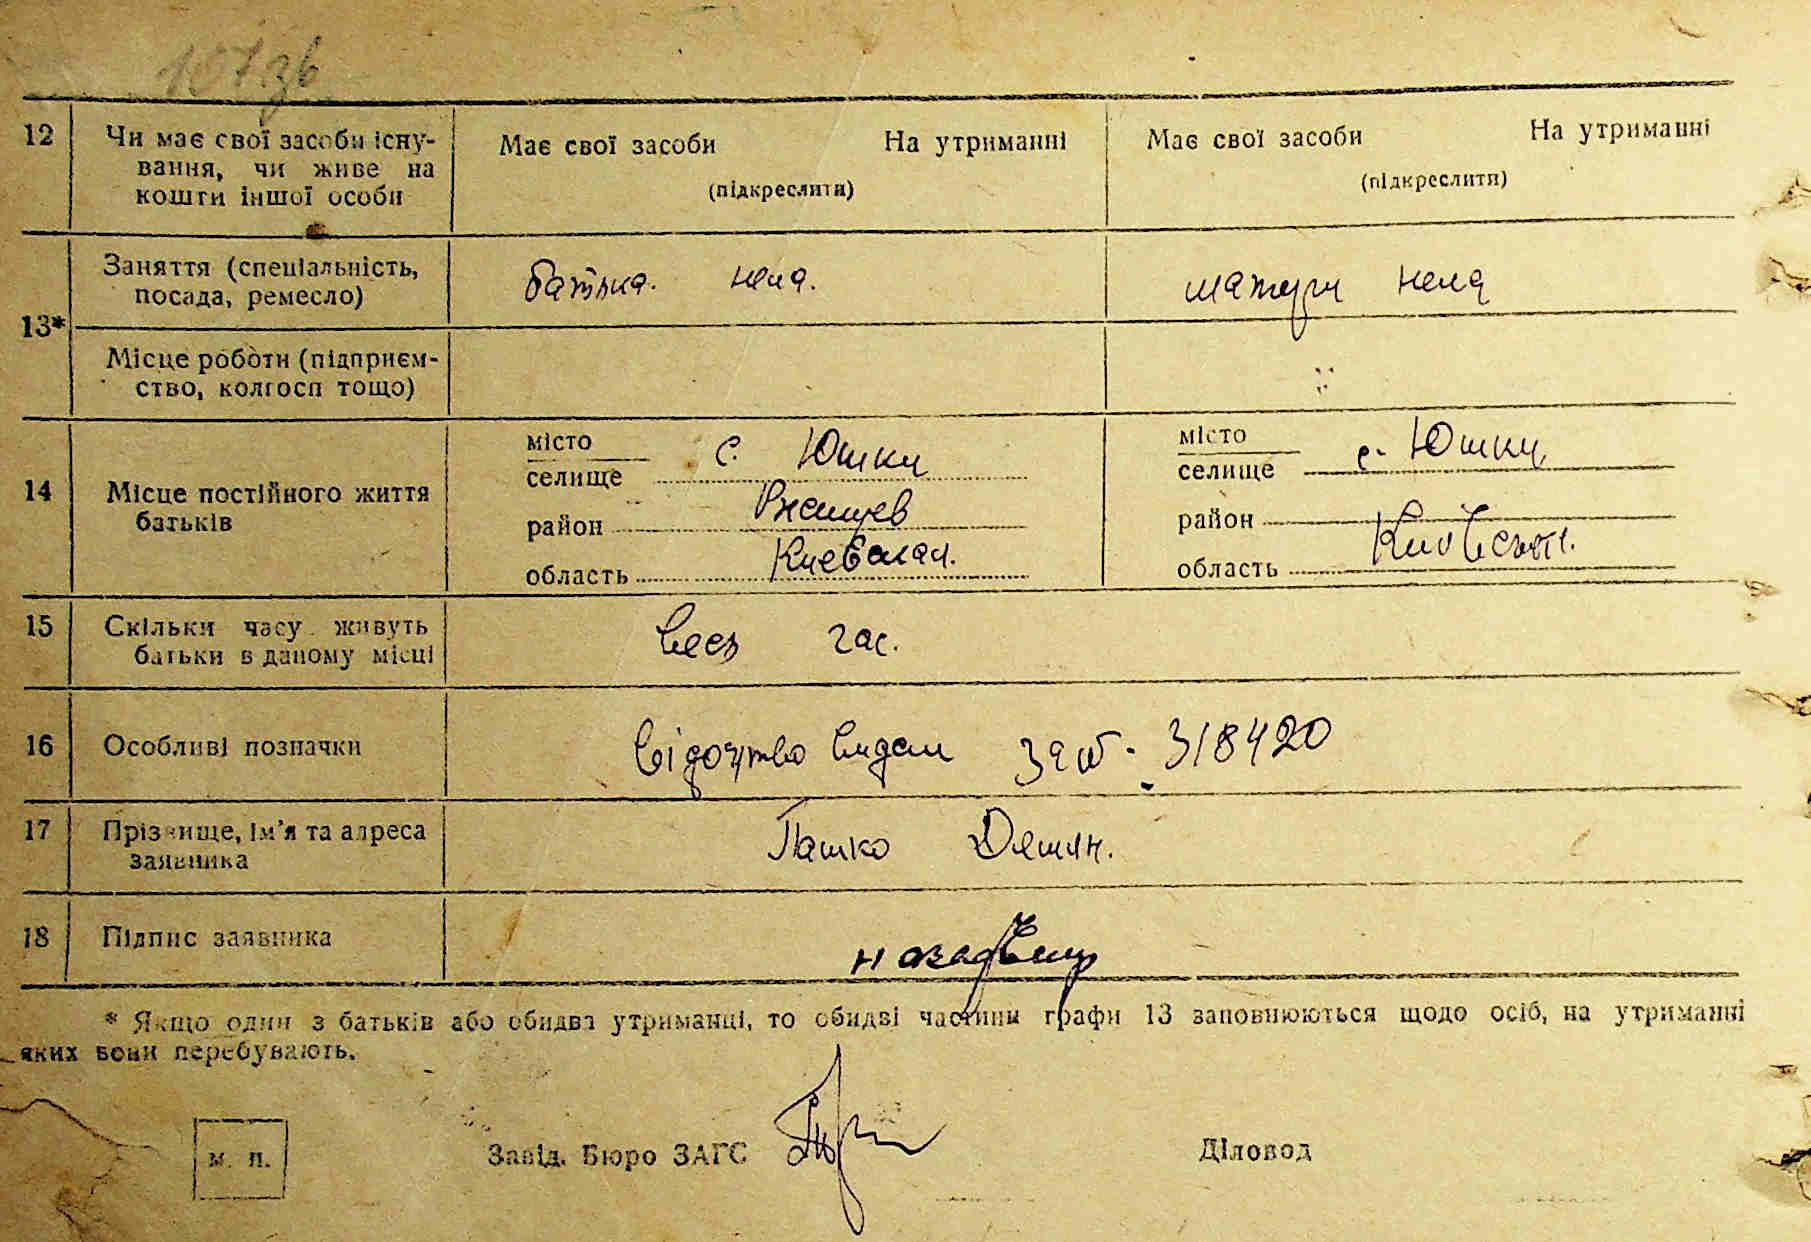 107зв
12 Чи має свої засоби існу- Має свої засоби На утриманні Має свої засоби На утриманні
вання, чи живе на (підкреслити) (підкреслити)
кошти іншої особи
13* Заняття (спеціальність, батька. нема. матери нема
посада, ремесло)
Місце роботи (підприєм-
ство, колгосп тощо)
14 Місце постійного життя батьків
місто селище с. Юшки місто селище с. Юшки
район Ржищев район
область Киевская. область
15 Скільки часу живуть весь час.
батьки в даному місці
16 Особливі позначки видали 318420
17 Прізвище, ім’я та адреса Пашко Демян.
заявника
18 Підпис заявника
* Якщо один з батьків або обидва утриманці, то обидві частини графи 13 заповнюються щодо осіб, на утриманні
яких вони перебувають.
м. п. Завід. Бюро ЗАГС Діловод